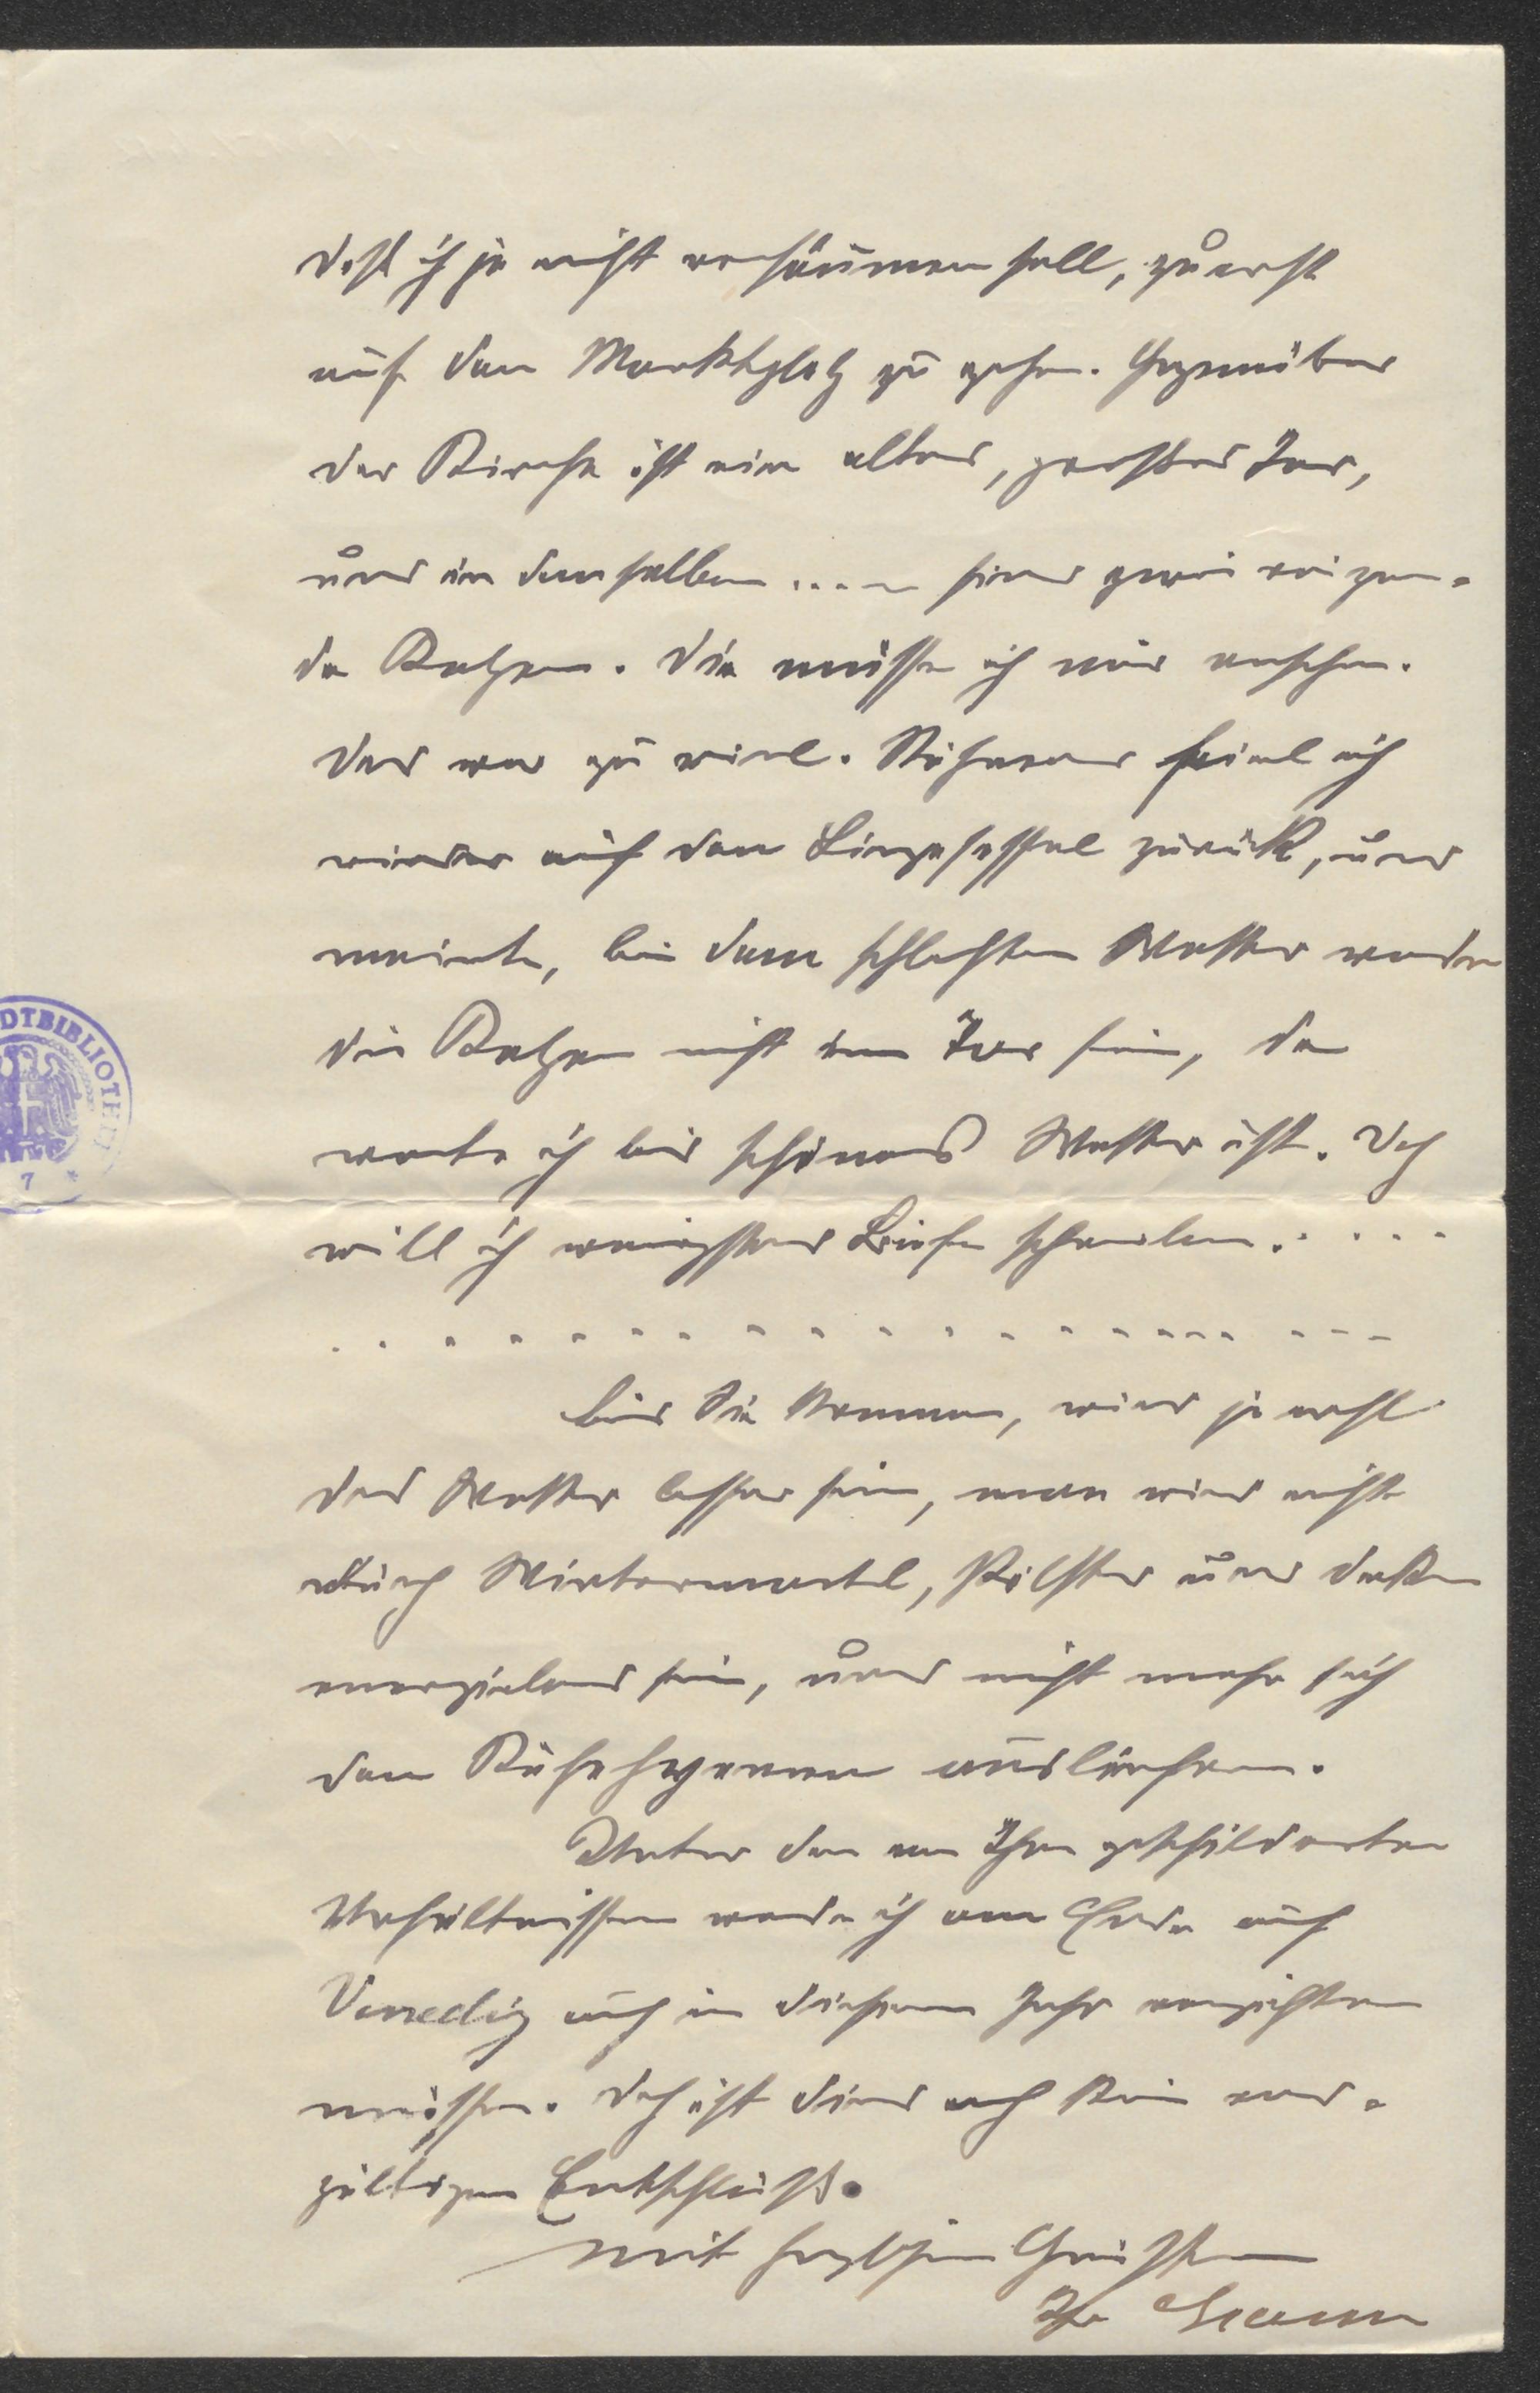 daß ich ja nicht versäumen soll, zuerst
auf den Marktplatz zu gehen. Gegenüber
der Kirche ist ein altes, großes Tor,
und in demselben .... sind zwei reizen-
de Katzen. Die müsse ich mir ansehen.
Das war zu viel. Rührend fiel ich
wieder auf den Liegesessel zurück, und
meinte, bei dem schlechten Wetter werden
die Katzen nicht im Tor sein, da
warte ich bis schönes Wetter ist. Doch
will ich wenigstens Briefe schreiben. . . . .
. . . . . . . . . . . . . . . . . . . . . .
bis Sie kommen, wird ja wohl
das Wetter besser sein, man wird nicht
durch Wintermantel, Polster und Decken
sein, und nicht mehr sich
den auslöschen.
Unter den von Ihnen geschilderten
Verhältnissen werde ich am Ende auf
Venedig auch in diesem Jahr verzichten
müssen. Doch ist dies noch kein end-
gültiger Entschluß.
Mit herzlichen Grüßen
Ihr
DTBIBLIOTH
7 *